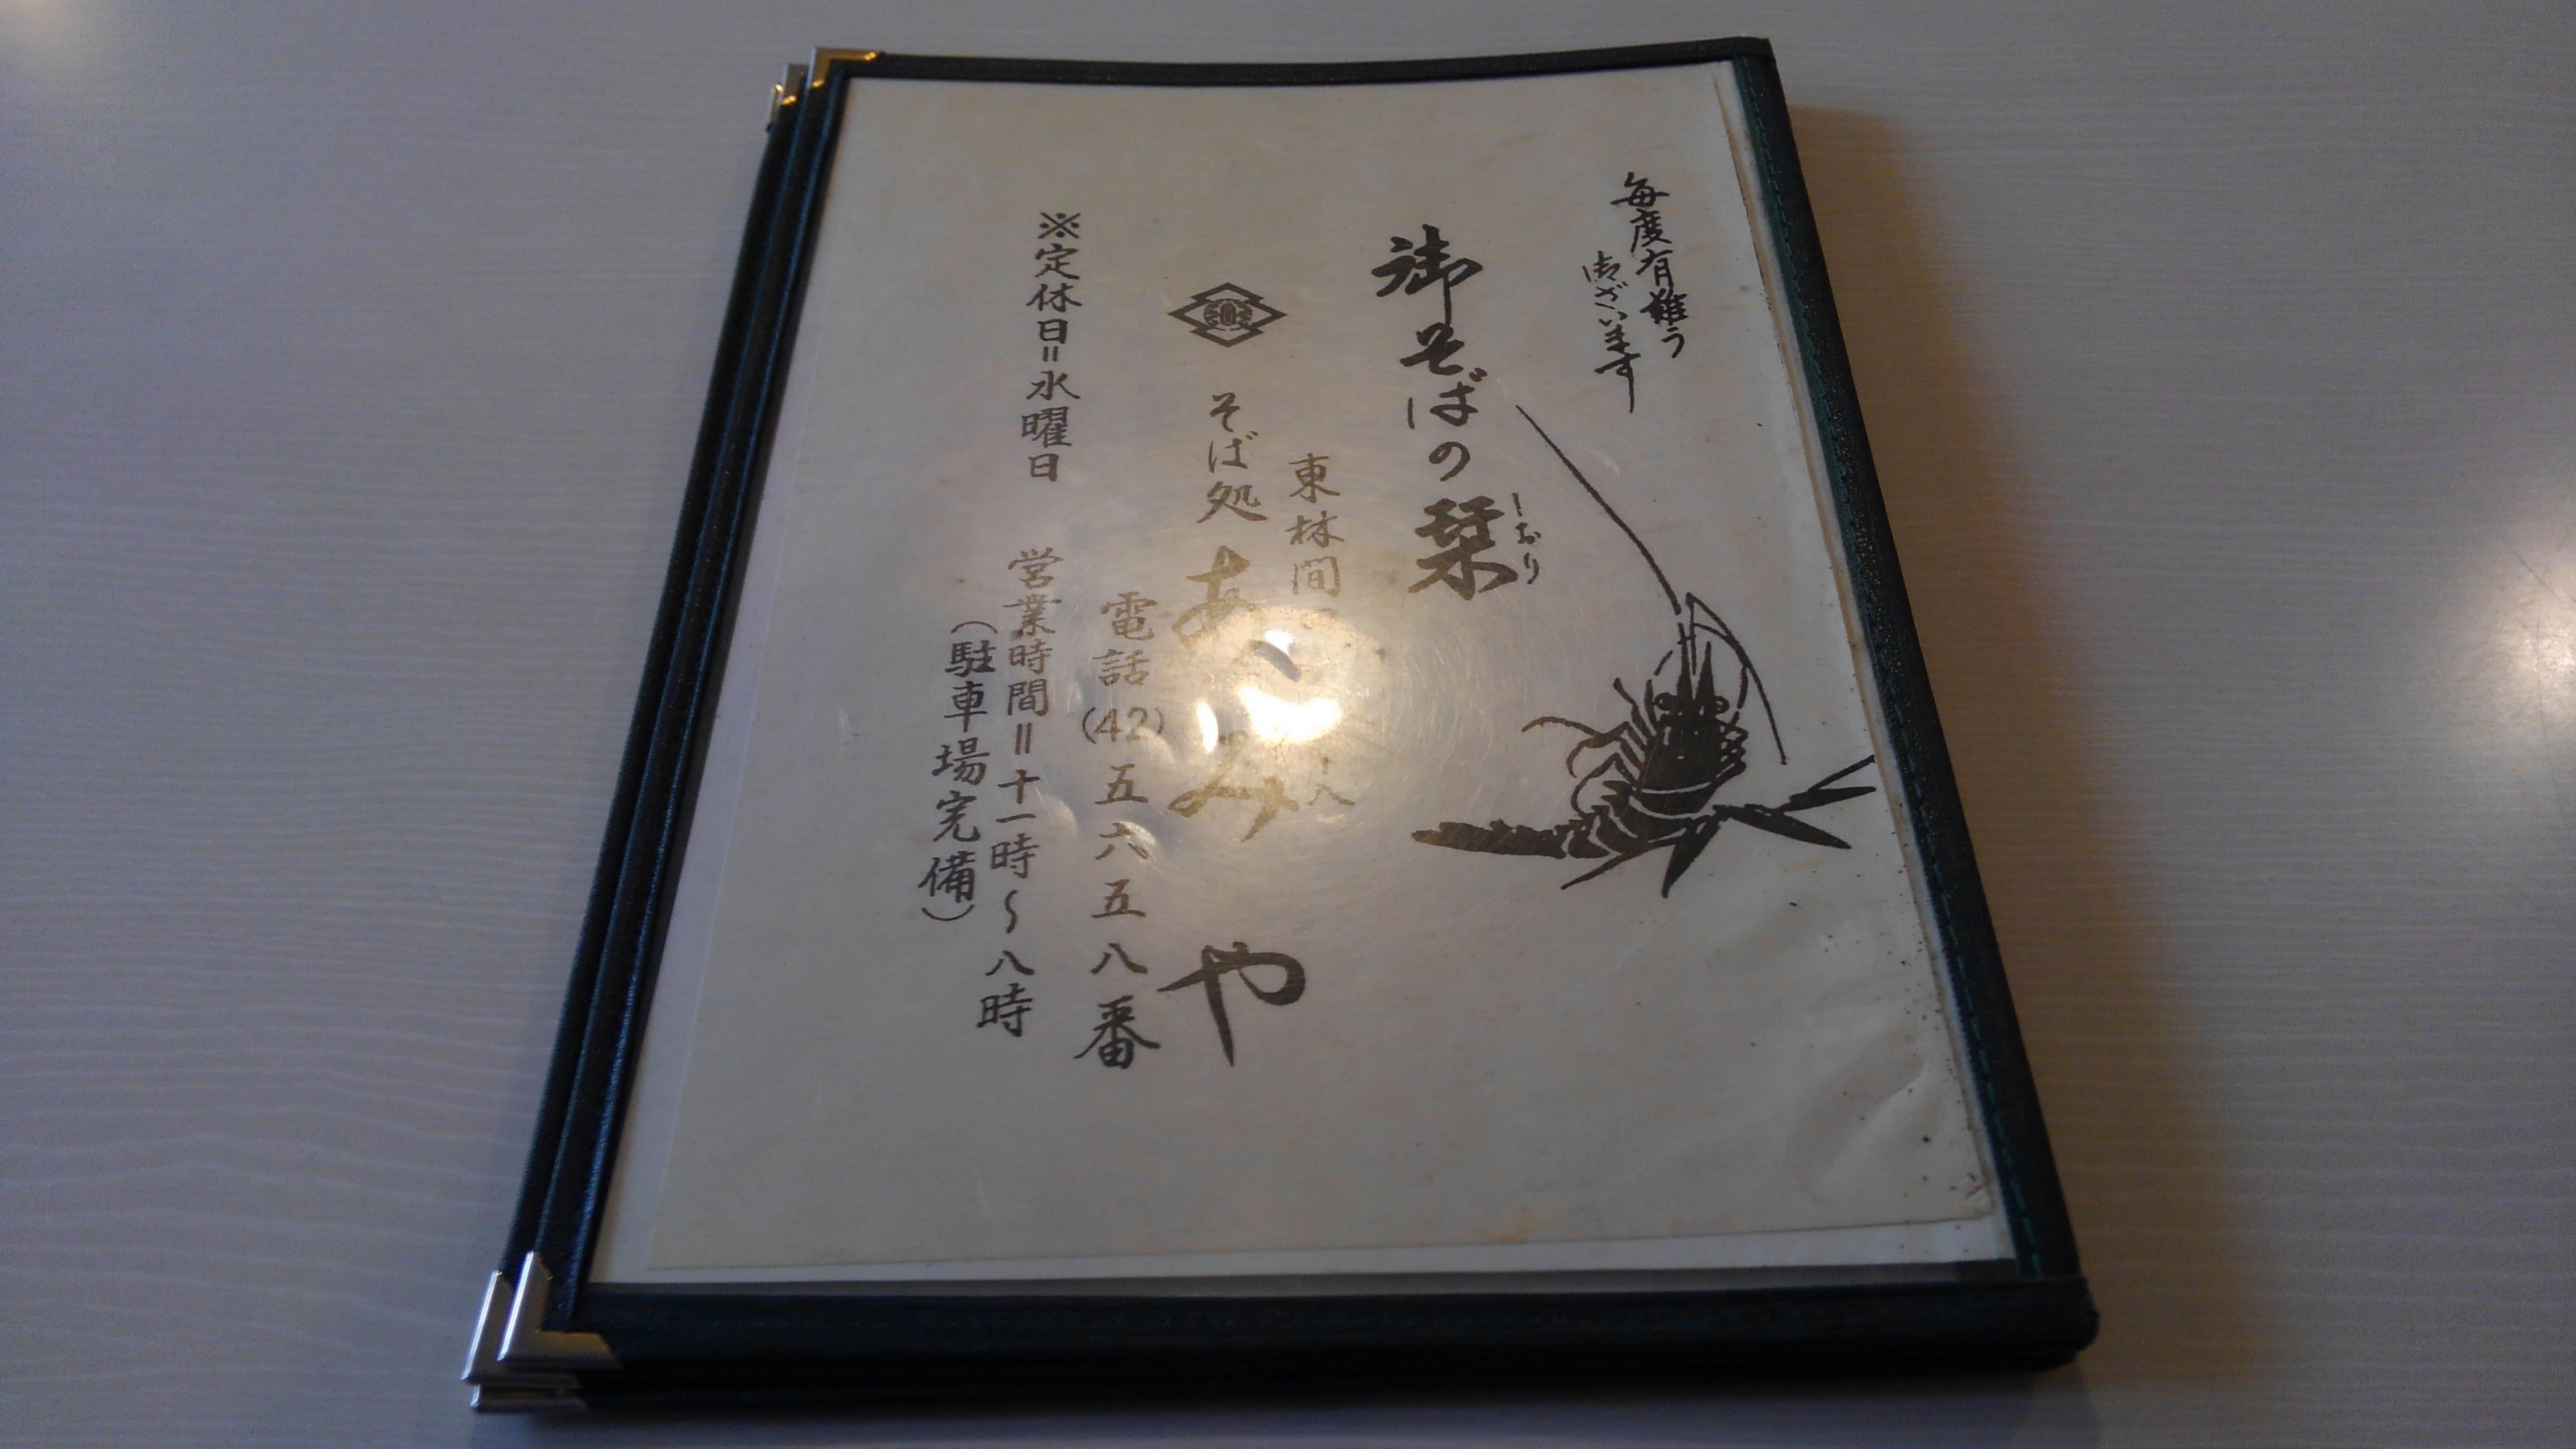 毎度有難う
御ざいます
御そばの栞
しおり
東林間
そば処
や
電話(42)五六五八番
※定休日=水曜日 営業時間=十一時~八時
(駐車場完備)